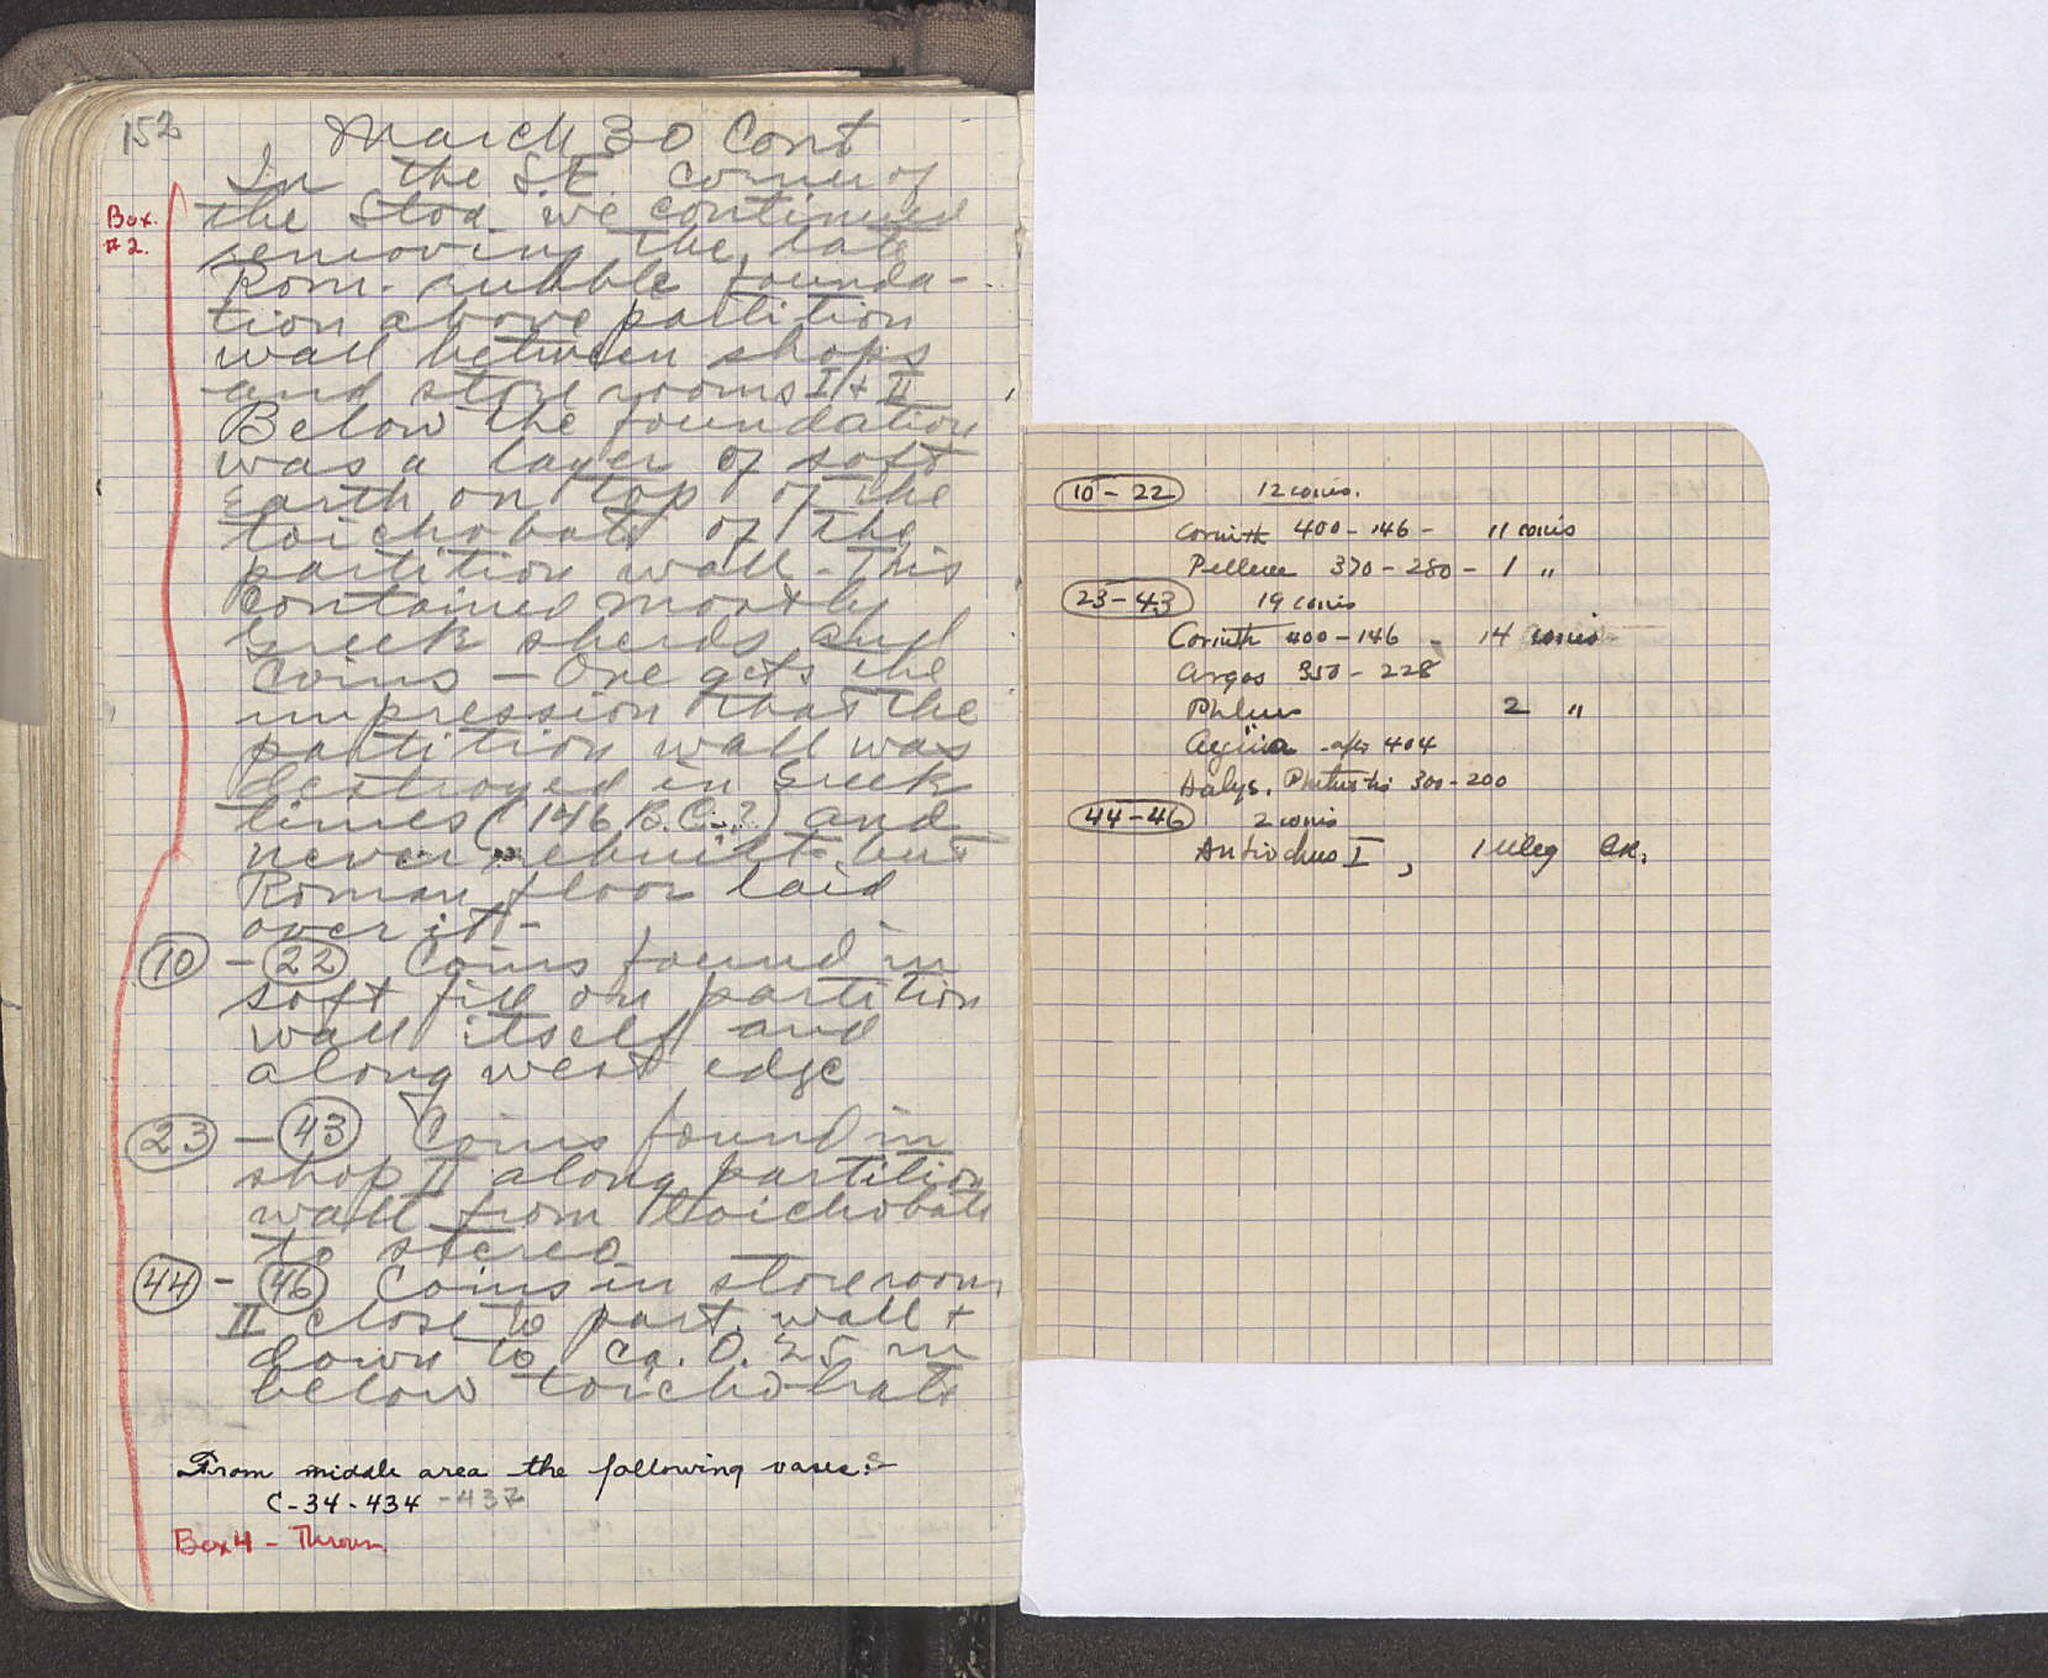 152
March 30 Cont
Box.
#2.
In the S.E. corner of
the Stoa we continued
removing the late
Rom. rubble founda-
tion above partition
wall between shops
and store rooms I + II
Below the foundation
was a layer of soft
earth on top of the
toichobate of the
partition wall - This
contained mostly
Greek sherds and
coins - One gets the
impression that the
partition wall was
destroyed in Greek
times (146 B.C.?) and
never rebuilt but
Roman floor laid
over it -
10 - 22 Coins found in
soft fill on partition
wall itself and
along west edge
23 - 43 Coins found in
shop II along partition
wall from toichobate
to stereo
44 - 46 Coins in storeroom
II close to part. wall +
down to ca. 0.25 m
below toichobate
From middle area the following vases:-
C-34-434 -437
Box 4 - Thrown
10 - 22 12 coins.
Corinth 400-146 - 11 coins
Pellene 370-280 - 1 "
23-43 19 coins
Corinth 400-146 - 14 coins
Argos 350-228
Phlius 2 "
Aegina - after 404
44-46 2 coins
Antiochus I, 1 illeg Gk.